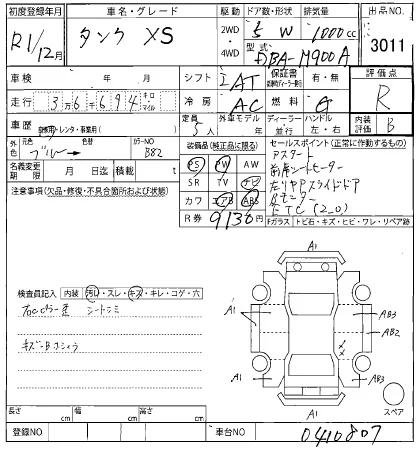 初度登録年月 車名・グレード 駆動 ドア数・形状 排気量 出品No.
R1/12月 タンク XS 2WD・4WD 5 W 1000cc 3011
型式 DBA-M900A
車検 年 月 シフト IAT 保証書 有・無 評価点
走行 3万6千694 キロ・マイル 冷房 AC 燃料 G R
車歴 自家用・レンタ・事業用( ) 定員 5人 外車モデル 年 ディーラー・並行 ハンドル 左・右 内装評価 B
外色 元色 ブルー 色替 カラーNO B82
名義変更期限 月 日迄 積載 t
装備品(純正品に限る) セールスポイント(正常に作動するもの)
PS PW AW Pスタート
SR TV ナビ 前席シートヒーター
カワ エアB ABS 左右Pスライドドア
R券 9130円 Bモニター
ETC(2.0)
注意事項(欠品・修復・不具合箇所および状態)
Fガラス トビ石・キズ・ヒビ・ワレ・リペア跡
検査員記入 内装 汚れ・スレ・キズ・キレ・コゲ・穴
シートシミ
A1
A1 AB3
AB2
A1 AB3
A1
スペア
長さ cm 幅 cm 高さ cm
登録NO 車台NO 0410807